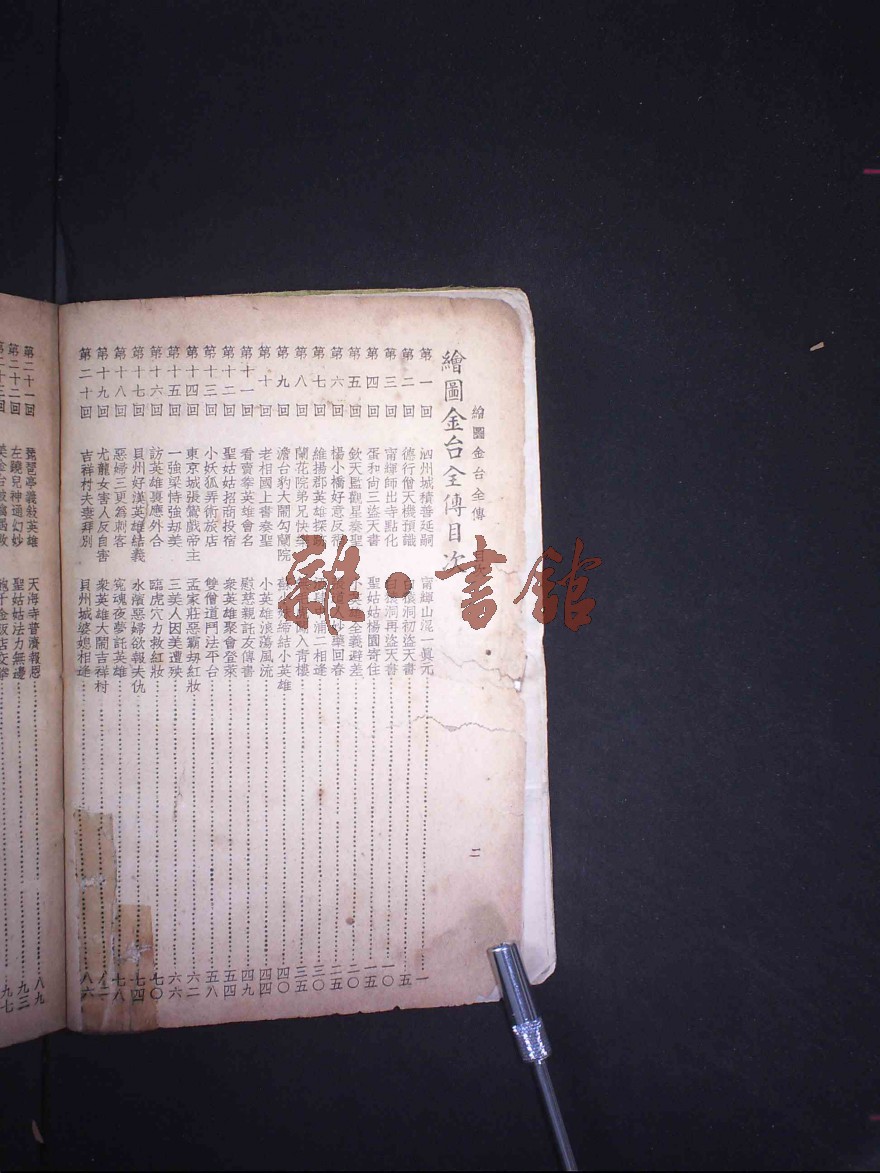 繪圖金台全傳
二
繪圖金台全傳目次
第一回 泗州城積善延嗣 甯輝山混一眞元 一
第二回 德行僧天機預識 白猿洞初盜天書 五
第三回 甯輝師出寺點化 白猿洞再盜天書 一〇
第四回 蛋和尙三盜天書 聖姑姑楊園寄住 一五
第五回 欽天監觀星奏聖 小英 全義避差 二〇
第六回 楊小橋好意反 妙藥回春 二五
第七回 維揚郡英雄探 浦二相逢 三〇
第八回 蘭花院弟兄快樂 入青樓 三五
第九回 澹台豹大鬧勾蘭院 締結小英雄 四〇
第十回 老相國上書奏聖 小英雄浪蕩風流 四四
第十一回 看賣拳英雄會名 慰慈親託友傳書 四九
第十二回 聖姑姑招商投宿 衆英雄聚會登萊 五四
第十三回 小妖狐弄術旅店 雙僧道鬥法平台 五八
第十四回 東京城張鸞戲帝主 孟家莊惡霸刼紅妝 六二
第十五回 一強梁恃強刼美 三美人因美遭殃 六六
第十六回 訪英雄裏應外合 臨虎穴力救紅妝 七〇
第十七回 貝州好漢英雄結義 水濱惡婦欲報夫仇 七四
第十八回 惡婦三更翁刺客 寃魂夜夢託英雄 七八
第十九回 尤龍女害人反自害 衆英雄大鬧吉祥村 八二
第二十回 吉祥村夫妻拜別 貝州城婆媳相逢 八六
第二十一回 琵琶亭義敍英雄 天海寺普濟報恩 八九
第二十二回 左蹺兒神通幻妙 聖姑姑法力無邊 九三
第二十三回 九七
雜·書館